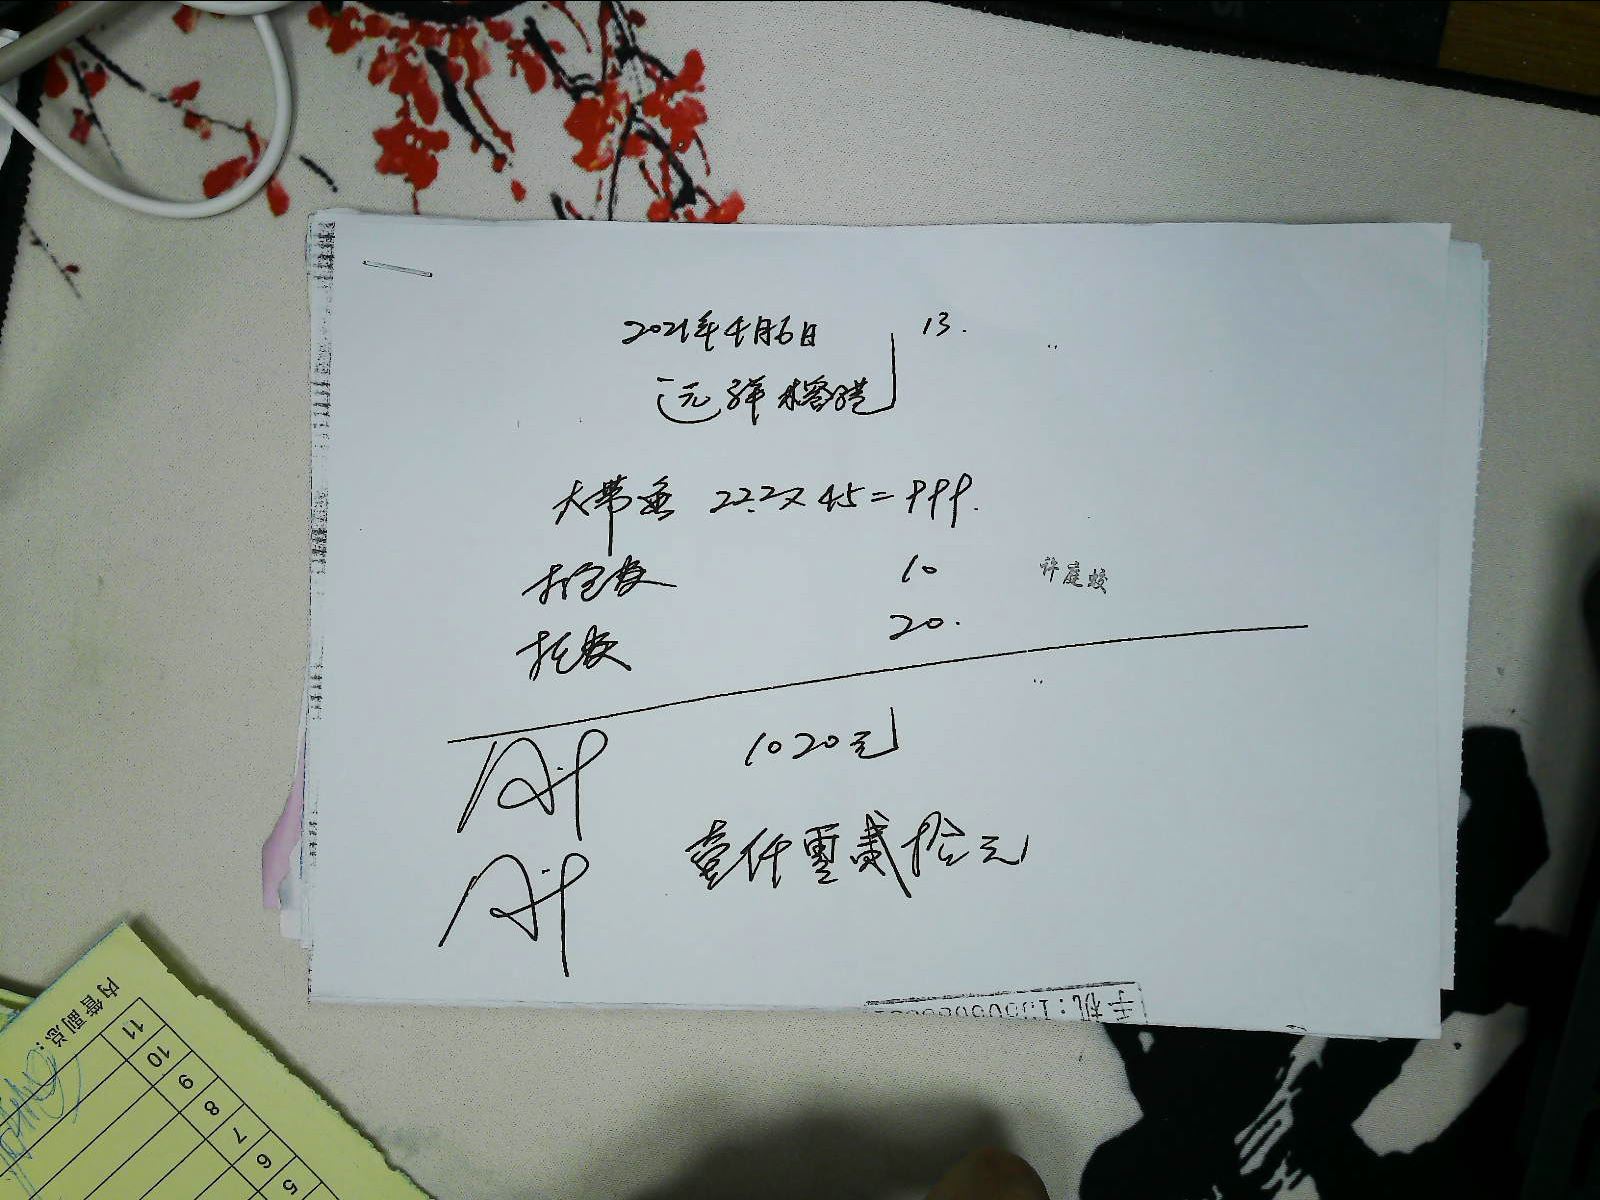 2021年4月6日 13.
远洋 榕港
大带鱼 22.2×45=999.
拉包费 10 许庭蛟
托费 20.
1020元
壹仟零贰拾元
手机:
内管副总:
11
10
9
8
7
6
5